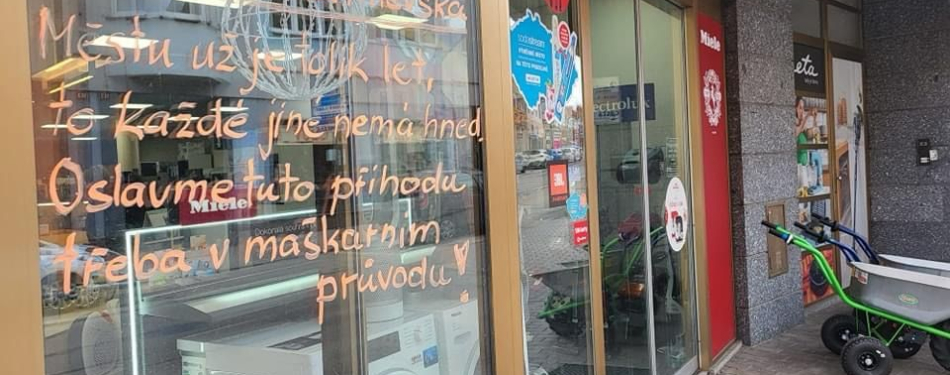 Městu už je tolik let,
to každé jiné nemá hned.
Oslavme tuto příhodu
třeba v maškarním
průvodu!
Miele
Dokonalá
sodastream
ectrolux
JBL
Miele
eta